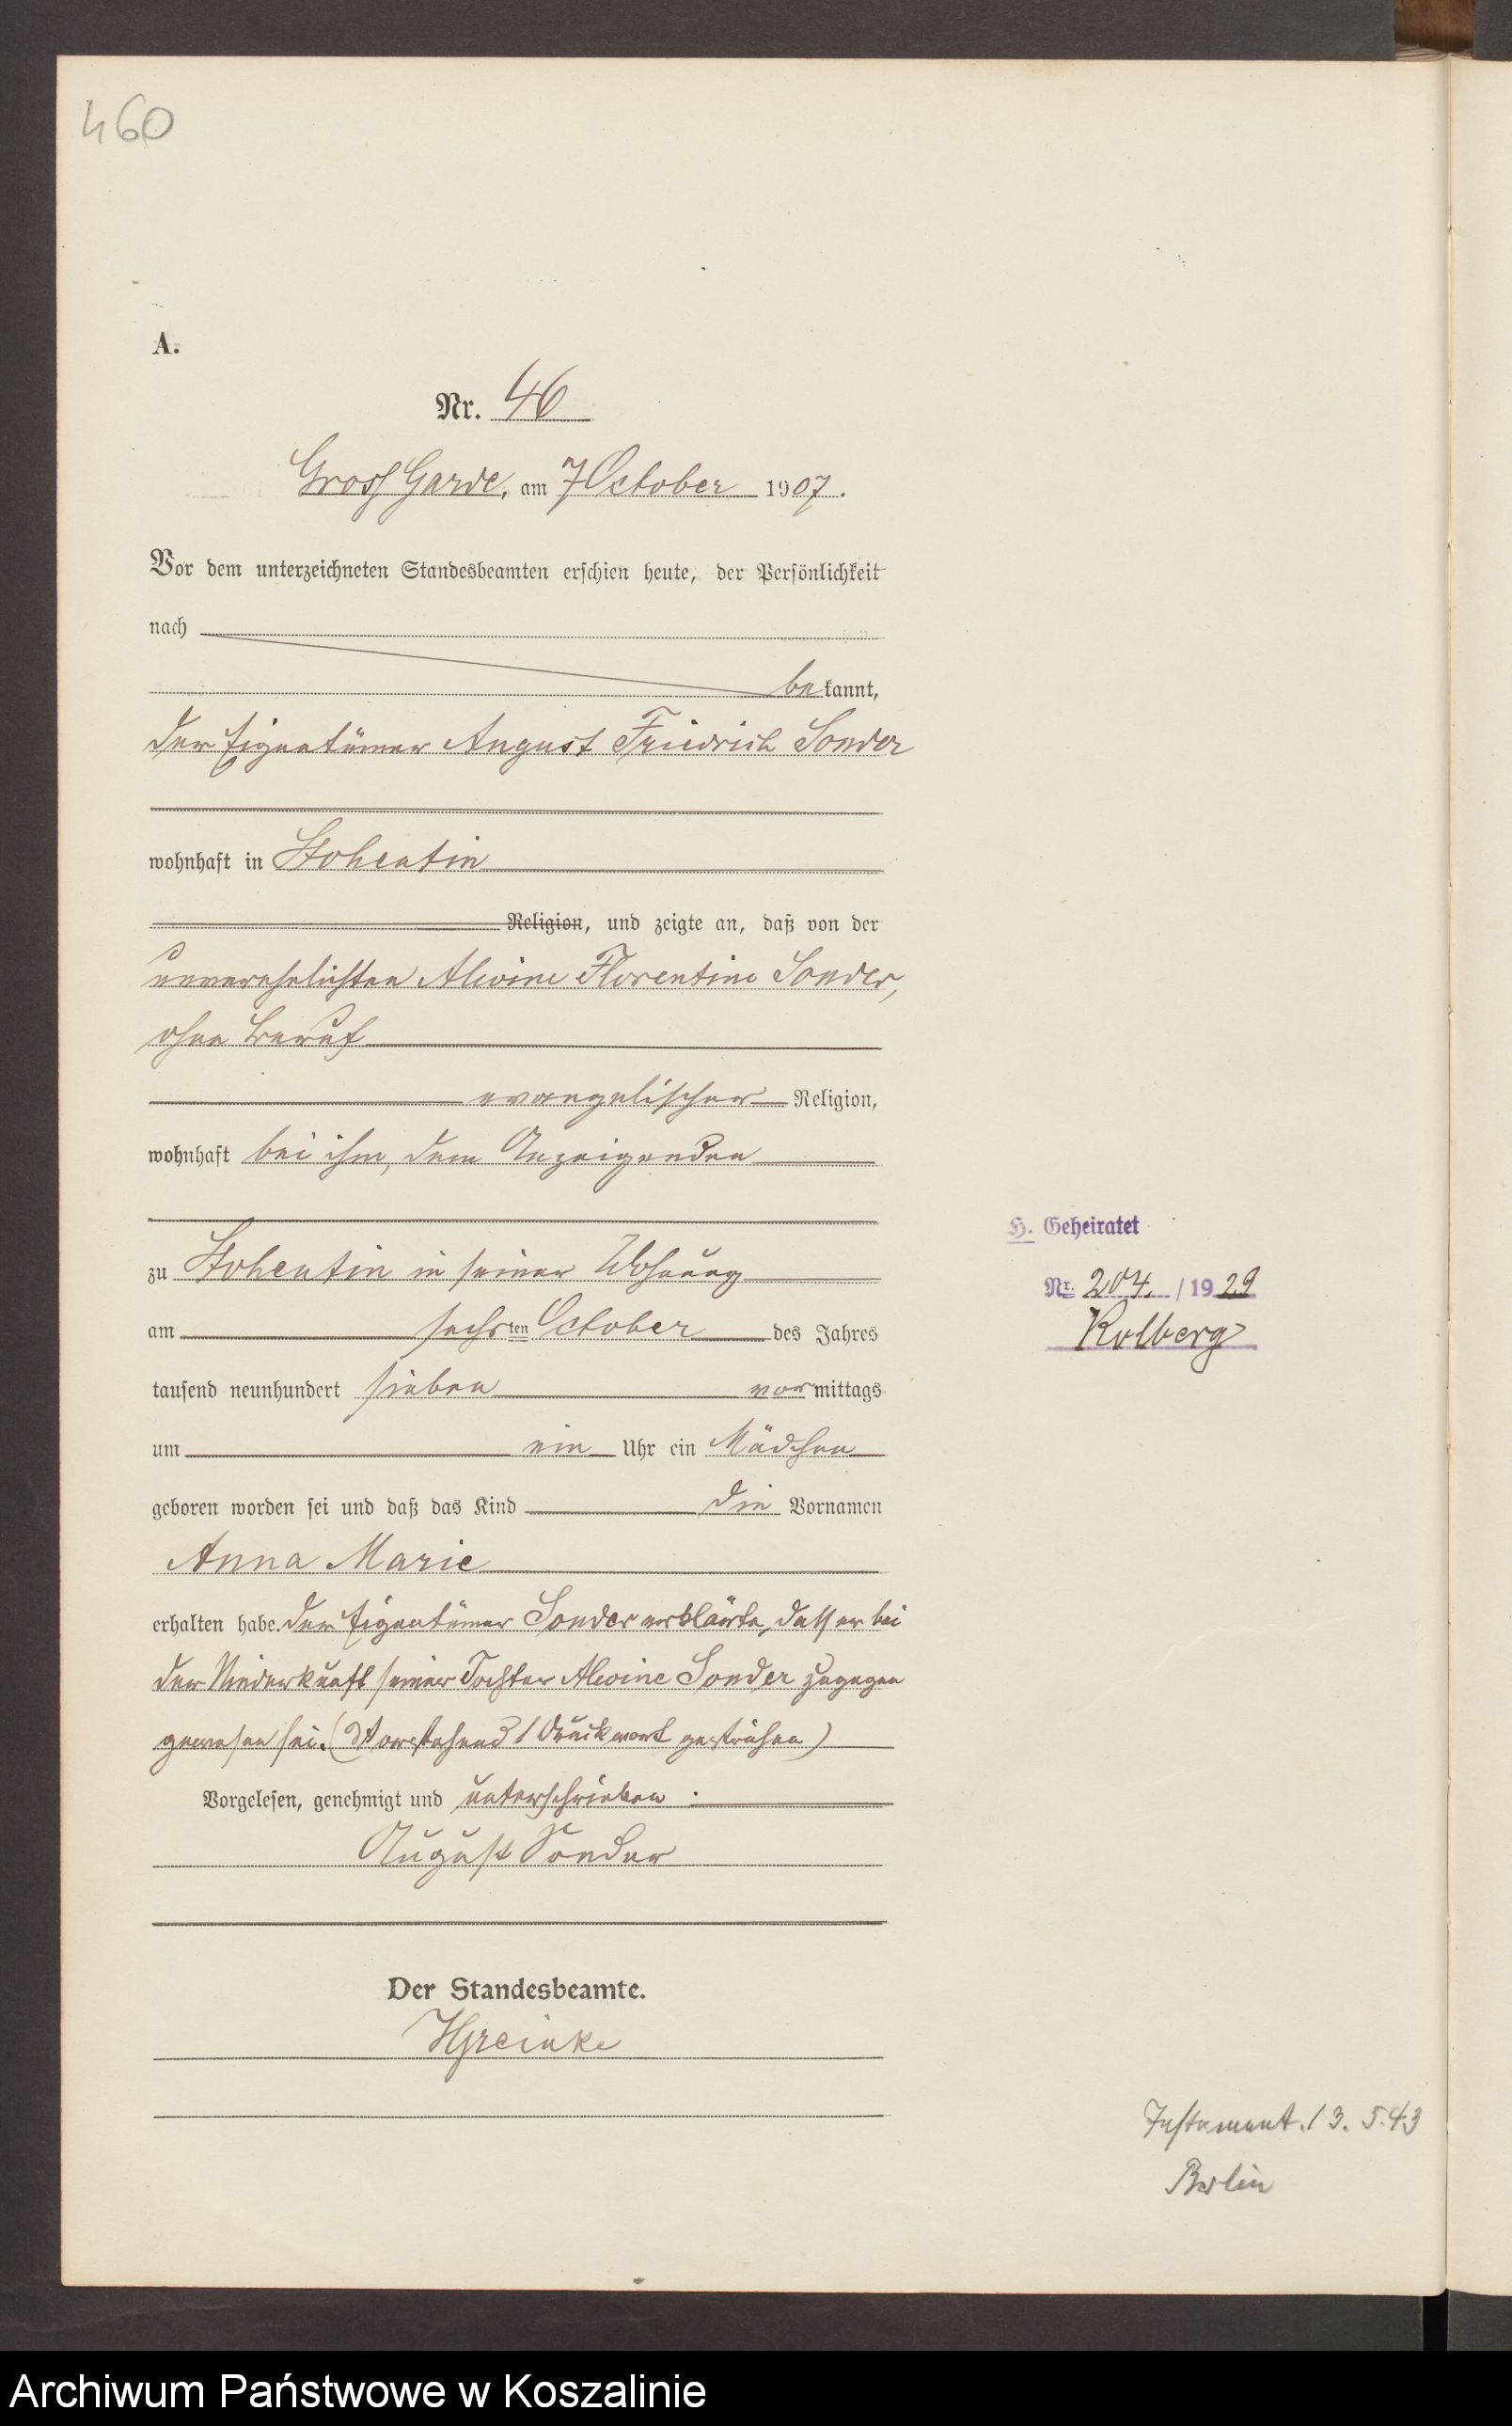 460
A.
Nr. 46
Gross Garde, am 7 October 1907.
Vor dem unterzeichneten Standesbeamten erschien heute, der Persönlichkeit
nach
bekannt,
der Eigentümer August Friedrich Sonder
wohnhaft in Stohentin
Religion, und zeigte an, daß von der
unverehelichten Alwine Florentine Sonder,
ohne Beruf
evangelischer Religion,
wohnhaft bei ihm, dem Anzeigenden
zu Stohentin in seiner Wohnung
am sechsten October des Jahres
tausend neunhundert sieben vormittags
um ein Uhr ein Mädchen
geboren worden sei und daß das Kind die Vornamen
Anna Marie
erhalten habe. Der Eigentümer Sonder erklärte, dass er bei
der Niederkunft seiner Tochter Alwine Sonder zugegen
gewesen sei. (Vorstehend 1 Druckwort gestrichen)
Vorgelesen, genehmigt und unterschrieben
August Sonder
Der Standesbeamte.
H. Geheiratet
Nr. 204. / 1929
Kolberg
Testament. 13. 5. 43
Berlin
Archiwum Państwowe w Koszalinie